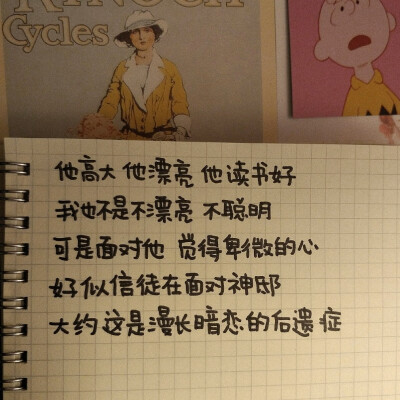 Cycles
他高大 他漂亮 他读书好
我也不是不漂亮 不聪明
可是面对他 觉得卑微的心
好似信徒在面对神邸
大约这是漫长暗恋的后遗症